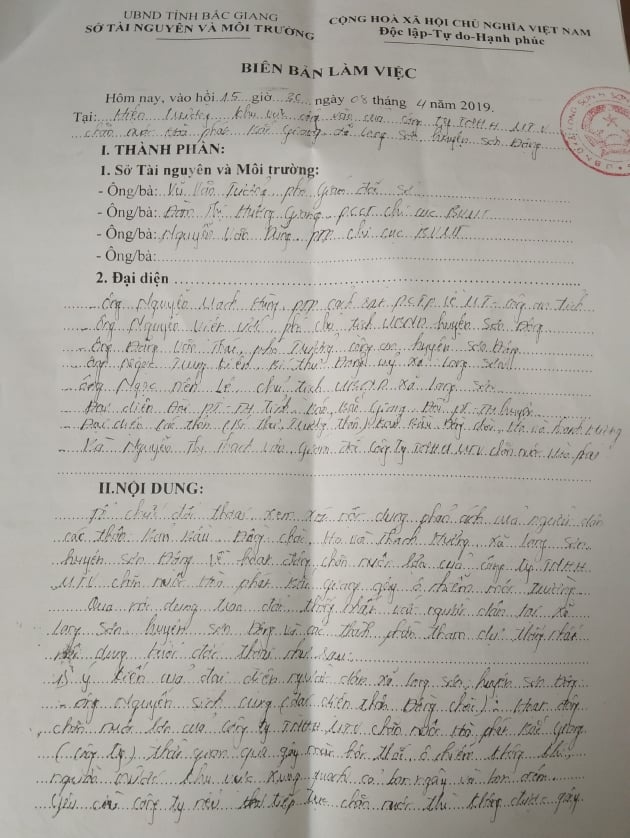 UBND TỈNH BẮC GIANG
SỞ TÀI NGUYÊN VÀ MÔI TRƯỜNG
CỘNG HOÀ XÃ HỘI CHỦ NGHĨA VIỆT NAM
Độc lập-Tự do-Hạnh phúc
BIÊN BẢN LÀM VIỆC
Hôm nay, vào hồi 15 giờ 30 ngày 08 tháng 4 năm 2019.
Tại: Hiện trường khu vực công ty TNHH MTV
chăn nuôi Hòa phát Bắc Giang xã Long Sơn huyện Sơn Động
I. THÀNH PHẦN:
1. Sở Tài nguyên và Môi trường:
- Ông/bà: Vũ Văn Tưởng phó Giám đốc Sở
- Ông/bà: Đàm Thị Hương Giang, PCCT chi cục BVMT
- Ông/bà: Nguyễn Văn Dũng, PTP chi cục BVMT
- Ông/bà:
2. Đại diện
Ông Nguyễn Mạnh Hùng, PTP cảnh sát PCTP về MT - công an tỉnh
Ông Nguyễn Viết phó chủ tịch UBND huyện Sơn Động
Ông Đặng Văn phó trưởng công an huyện Sơn Động
Ông Ngọc Trung Kiên, Bí thư Đảng uỷ xã Long Sơn
Ông Ngọc Lê chủ tịch UBND xã Long Sơn
Đại diện Đài PT-TH tỉnh, báo Bắc Giang, Đài PT-TH huyện
Đại diện các thôn (Bí thư, Trưởng thôn) Bản Bầu, Đồng chòi, Hạ và Thanh Hương
Bà Nguyễn Thị Giám đốc Công ty TNHH MTV chăn nuôi Hòa phát
II.NỘI DUNG:
Tổ chức đối thoại, xem xét nội dung phản ánh của người dân
các thôn Bản Bầu, Đồng chòi, Hạ và Thanh Hương, xã Long Sơn
huyện Sơn Động về hoạt động chăn nuôi lợn của công ty TNHH
MTV chăn nuôi Hòa phát Bắc Giang gây ô nhiễm môi trường
Qua nội dung đối thoại với người dân tại xã
Long Sơn, huyện Sơn Động và các thành phần tham dự thống nhất
nội dung buổi đối thoại như sau:
Ý kiến của đại diện người dân xã Long Sơn, huyện Sơn Động
- Ông Nguyễn Sinh Cung (đại diện thôn Đồng chòi): Hoạt động
chăn nuôi lợn của Công ty TNHH MTV chăn nuôi Hòa phát Bắc Giang
(Công ty) thời gian qua gây mùi hôi thối, ô nhiễm không khí,
nguồn nước khu vực xung quanh cả ban ngày và ban đêm.
Yêu cầu công ty nếu tiếp tục chăn nuôi thì không được gây